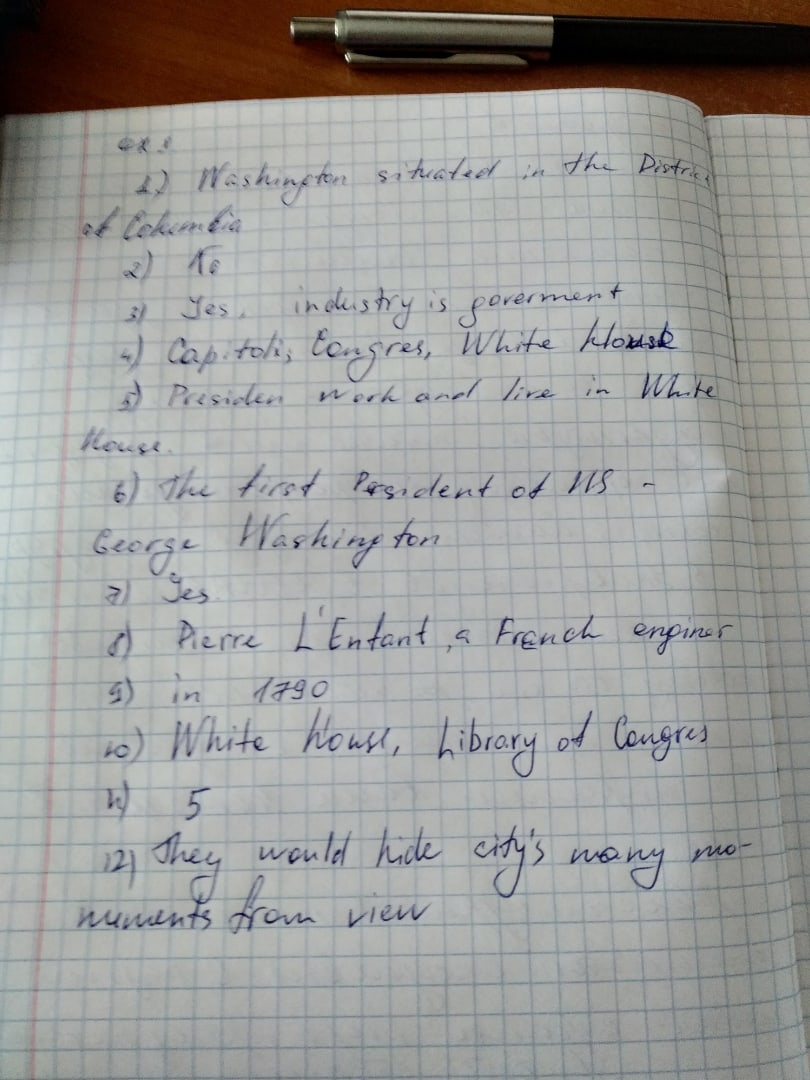 ex 1
1) Washington situated in the District
of Columbia
2) No
3) Yes, industry is goverment
4) Capitoli, Congres, White House
5) Presiden work and live in White
House.
6) The first President of US -
George Washington
7) Yes.
8) Pierre L'Enfant, a French enginer
9) in 1790
10) White House, Library of Congres
11) 5
12) They would hide city's many mo-
numents from view